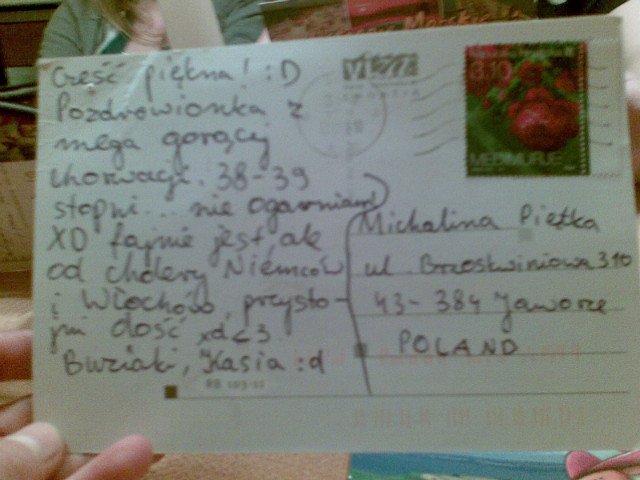 Cześć piękna! :D
Pozdrowionka z
mega gorącej
chorwacji. 38-39
stopni... nie ogarniam!
XD fajnie jest, ale
od cholery Niemców
i Włochów, przysto-
jni dość xd <3
Buziaki, Kasia :d
3.10
MEĐIMURJE
Michalina Piętka
ul. Brzoskwiniowa 310
43-384 Jaworze
POLAND